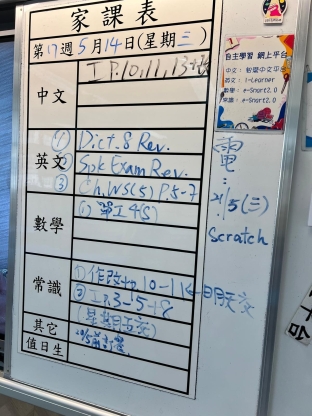 家課表
第17週5月14日(星期三)
中文
工P.10,11,13
英文
① Dict. 8 Rev.
② Spk Exam Rev.
③ Ch. WS(5) P.5-7
數學
(1) 單工4(5)
常識
② 工P.3-15-18
其它
值日生
自主學習 網上平台
中文:
英文: i-Learner
數學: e-Smart2.0
常識: e-Smart2.0
電
21/5(三)
Scratch